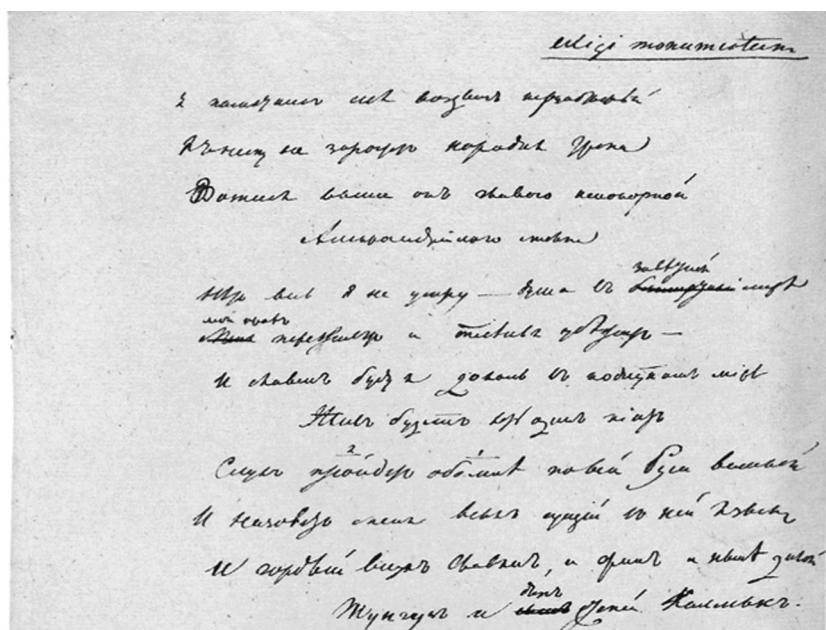 exegi monumentum
Я памятник себѣ воздвигъ нерукотворный
Къ нему не заростетъ народная тропа
Вознесся выше онъ главою непокорной
Александрійскаго столпа
завѣтной
Нѣтъ весь я не умру — душа въ лирѣ
мой прахъ
переживетъ и тлѣнья убѣжитъ —
И славенъ буду я доколь въ подлунномъ мірѣ
Живъ будетъ хоть одинъ піитъ
2 1
Слухъ пройдетъ обо мнѣ по всей Руси великой
И назоветъ меня всякъ сущій въ ней языкъ
И гордый внукъ Славянъ, и Финнъ и нынѣ дикой
Тунгузъ и другъ степей Калмыкъ.